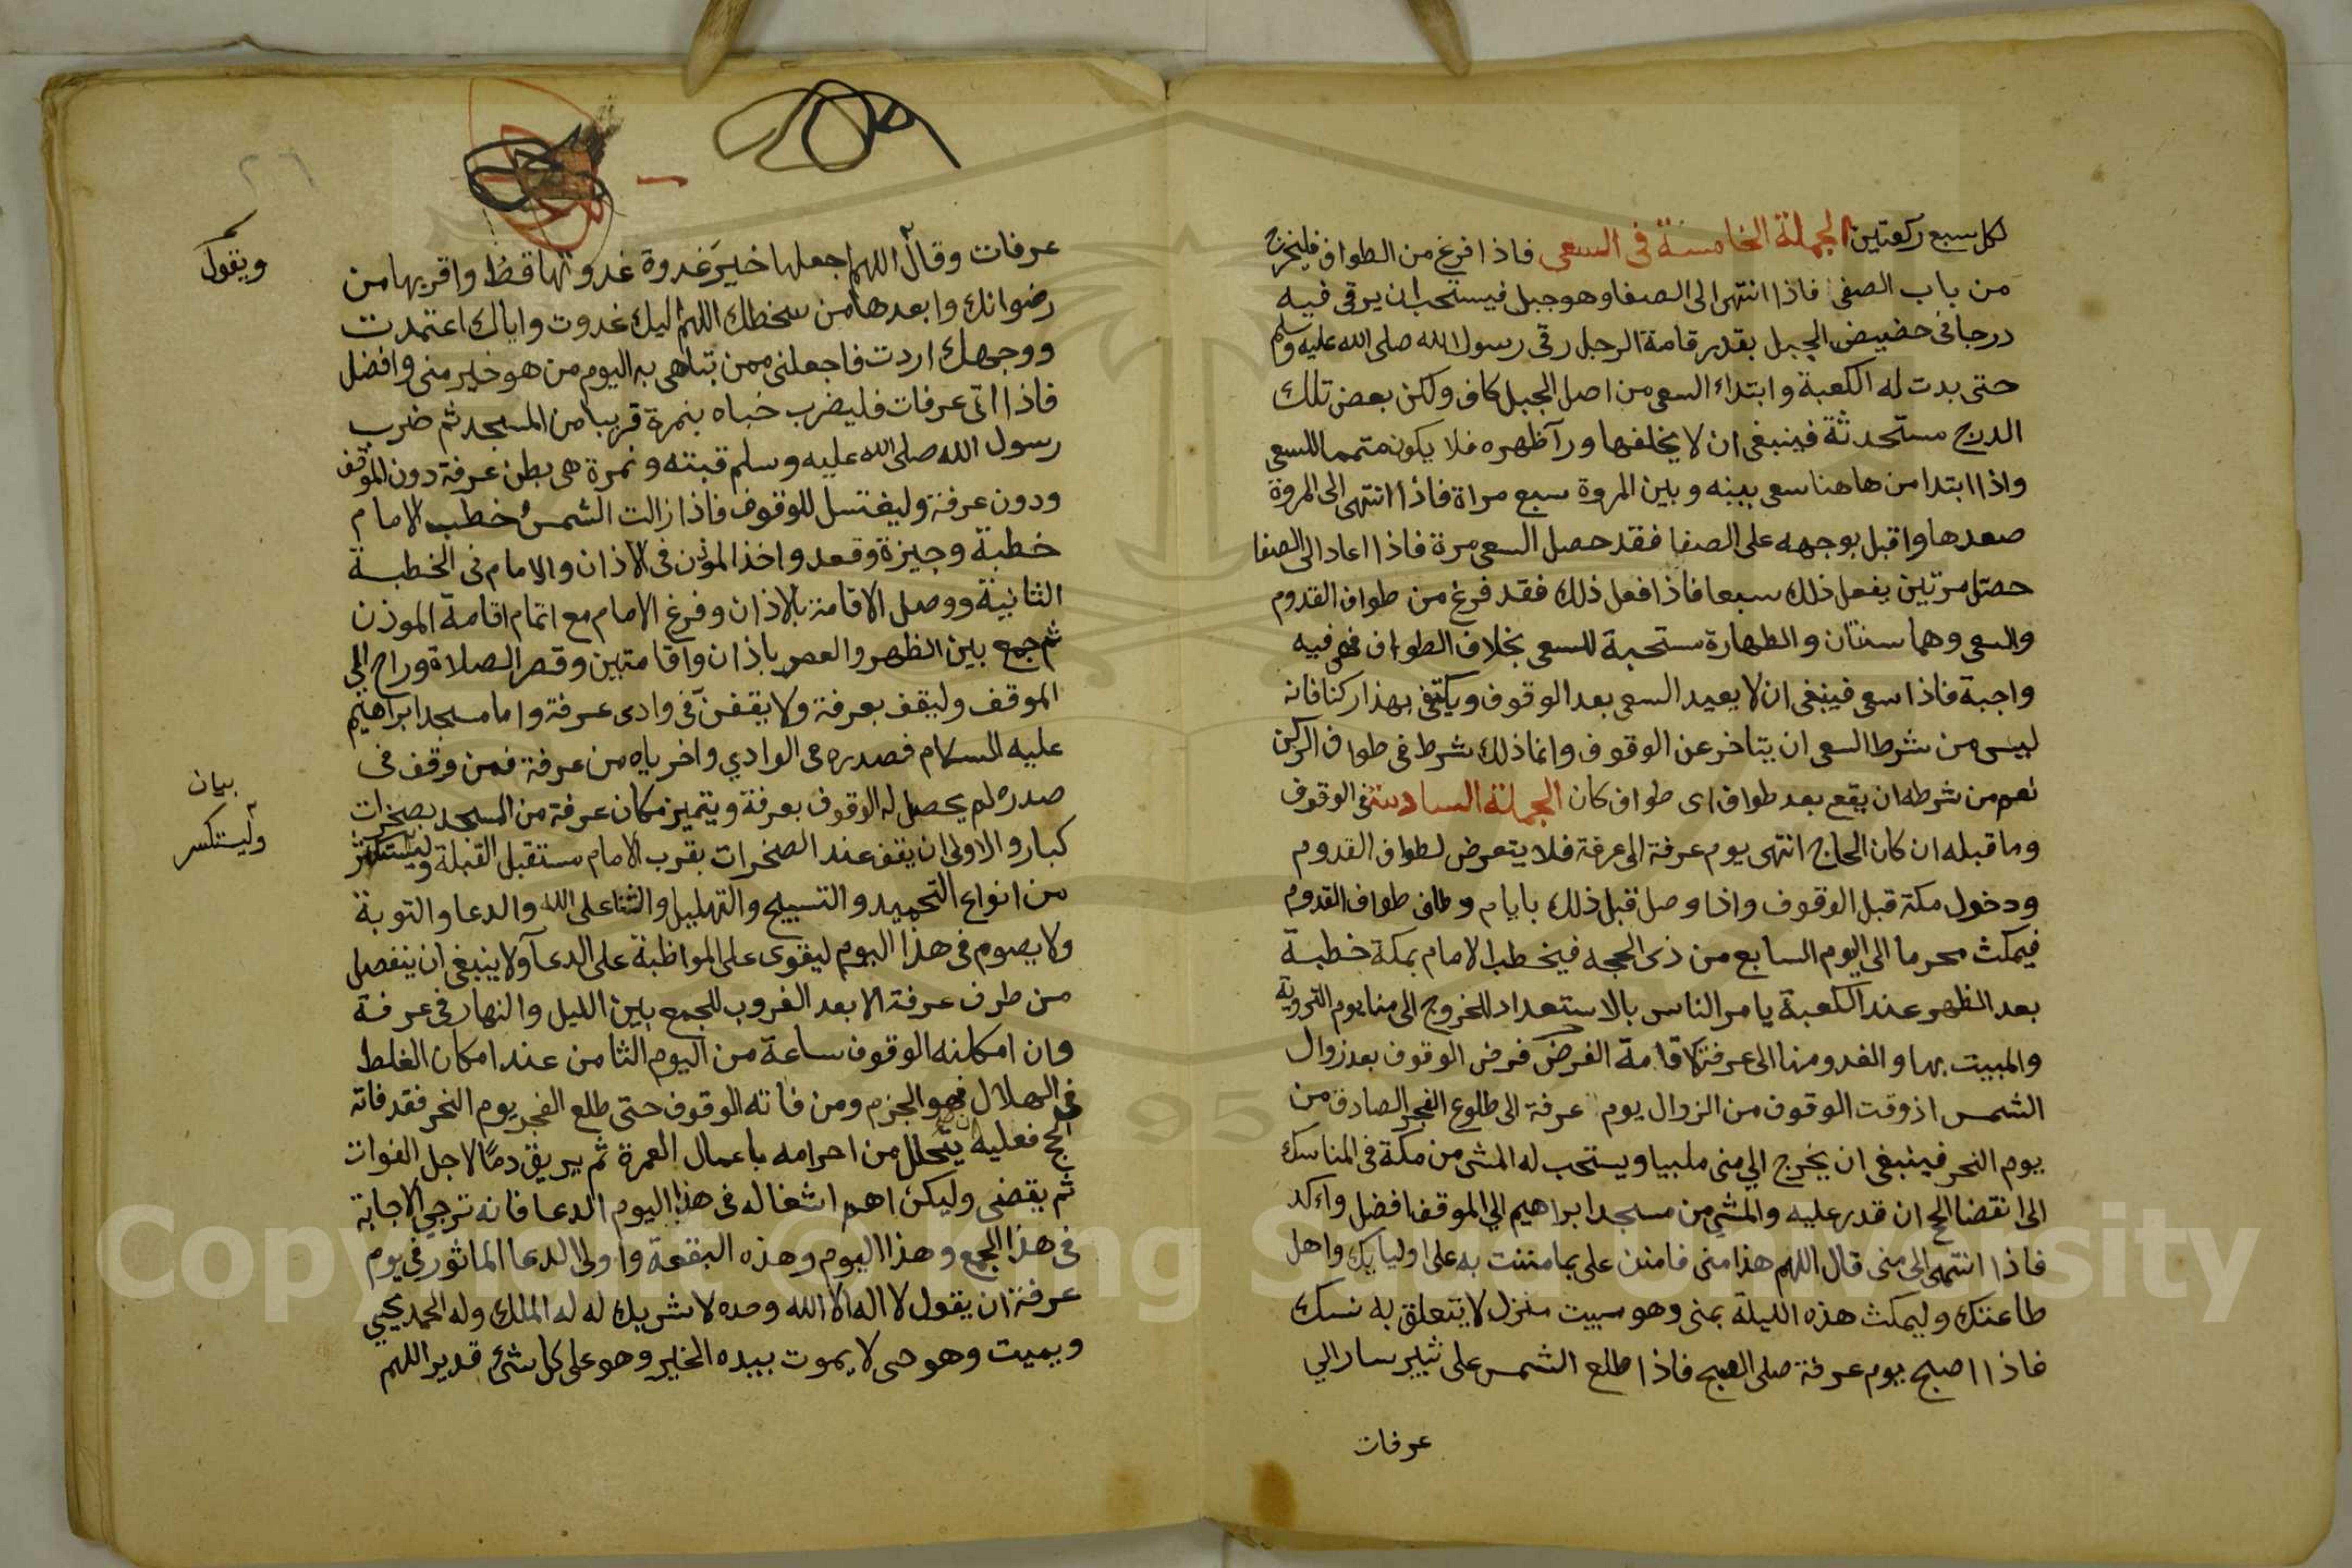 لكل سبع ركعتين الجملة الخامسة فى السعى فاذا فرغ من الطواف فليخرج
من باب الصفى فاذا انتهى الى الصفا وهو جبل فيستحب ان يرقى فيه
درجا فى حضيض الجبل بقدر قامة الرجل رقى رسول الله صلى الله عليه وسلم
حتى بدت له الكعبة وابتداء السعى من اصل الجبل كاف ولكن بعض تلك
الدرج مستحدثة فينبغى ان لا يخلفها ورآ ظهره فلا يكون متمما للسعى
واذا ابتدا من هاهنا سعى بينه وبين المروة سبع مراة فاذا انتهى الى المروة
صعدها واقبل بوجهه على الصفا فقد حصل السعى مرة فاذا اعاد الى الصفا
حصتل مرتين يفعل ذلك سبعا فاذا فعل ذلك فقد فرغ من طواف القدوم
والسعى وهما سنتان والطهارة مستحبة للسعى بخلاف الطواف فهى فيه
واجبة فاذا سعى فينبغى ان لا يعيد السعى بعد الوقوف ويكتفى بهذا ركنا فانه
ليس من شرط السعى ان يتاخر عن الوقوف وانما ذلك شرط فى طواف الركن
نعم من شرطه ان يقع بعد طواف اى طواف كان الجملة السادسة فى الوقوف
وما قبله ان كان الحاج انتهى يوم عرفة الى عرفة فلا يتعرض لطواف القدوم
ودخول مكة قبل الوقوف واذا وصل قبل ذلك بايام وطاف طواف القدوم
فيمكث محرما الى اليوم السابع من ذى الحجه فيخطب الامام بمكة خطبة
بعد الظهر عند الكعبة يامر الناس بالاستعداد للخروج الى منا يوم التروية
والمبيت بها والغدو منها الى عرفة لاقامة الفرض فرض الوقوف بعد زوال
الشمس اذ وقت الوقوف من الزوال يوم عرفة الى طلوع الفجر الصادق من
يوم النحر فينبغى ان يخرج الي منى ملبيا ويستحب له المشى من مكة فى المناسك
الى انقضا الحج ان قدر عليه والمشي من مسجد ابراهيم الي الموقف افضل واكد
فاذا انتهى الى منى قال اللهم هذا منى فامنن على بما مننت به على اوليايك واهل
طاعتك وليمكث هذه الليلة بمنى وهو مبيت منزل لا يتعلق به نسك
فاذا اصبح يوم عرفة صلى الصبح فاذا طلع الشمس على ثبير سار الي
عرفات
عرفات وقال اللهم اجعلها خير غدوة غدوتها قط واقربها من
رضوانك وابعدها من سخطك اللهم اليك غدوت واياك اعتمدت
ووجهك اردت فاجعلنى ممن تباهى به اليوم من هو خير منى وافضل
فاذا اتى عرفات فليضرب خباه بنمرة قريبا من المسجد ثم ضرب
رسول الله صلى الله عليه وسلم قبته ونمرة هى بطن عرفة دون الموقف
ودون عرفة وليغتسل للوقوف فاذا زالت الشمس خطب الامام
خطبة وجيزة وقعد واخذ الموذن فى الاذان والامام فى الخطبة
الثانية ووصل الاقامة بالاذان وفرغ الامام مع اتمام اقامة الموذن
ثم جمع بين الظهر والعصر باذان واقامتين وقصر الصلاة وراح الي
الموقف وليقف بعرفة ولا يقفنّ فى وادى عرفة واما مسجد ابراهيم
عليه السلام فصدره فى الوادي واخرياه من عرفة فمن وقف فى
صدره لم يحصل له الوقوف بعرفة ويتميز مكان عرفة من المسجد بصخرات
كبار والاولى ان يقف عند الصخرات بقرب الامام مستقبل القبلة وليستكثر
من انواع التحميد والتسبيح والتهليل والثنا على الله والدعا والتوبة
ولا يصوم فى هذا اليوم ليقوى على المواظبة على الدعآ ولا ينبغى ان ينفصل
من طرف عرفة الا بعد الغروب للجمع بين الليل والنهار فى عرفة
وان امكنه الوقوف ساعة من اليوم الثامن عند امكان الغلط
فى الهلال فهو الجزم ومن فاته الوقوف حتى طلع الفجر يوم النحر فقد فاته
الحج فعليه ان يتحلل من احرامه باعمال العمرة ثم يريق دمًا لاجل الفوات
ثم يقضى وليكن اهم اشغاله فى هذا اليوم الدعا فانه ترجي الاجابة
فى هذا الجمع وهذا اليوم وهذه البقعة واولى الدعا الماثور فى يوم
عرفة ان يقول لا اله الا الله وحده لا شريك له له الملك وله الحمد يحيي
ويميت وهو حى لا يموت بيده الخير وهو على كل شئ قدير اللهم
ويقول
بيان
وليستكسر
٢٦
Copyright © King Saud University